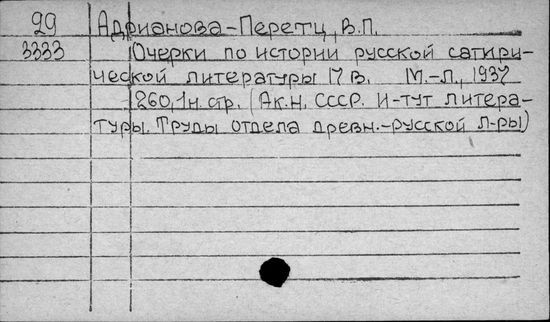 29 Адрианова-Перетц, В.П.
3333 Очерки по истории русской сатири-
ческой литературы 17 в. М.-Л., 1937
260, 1н. стр. (Ак.н. СССР. И-тут литера-
туры. Труды отдела древн.-русской л-ры)